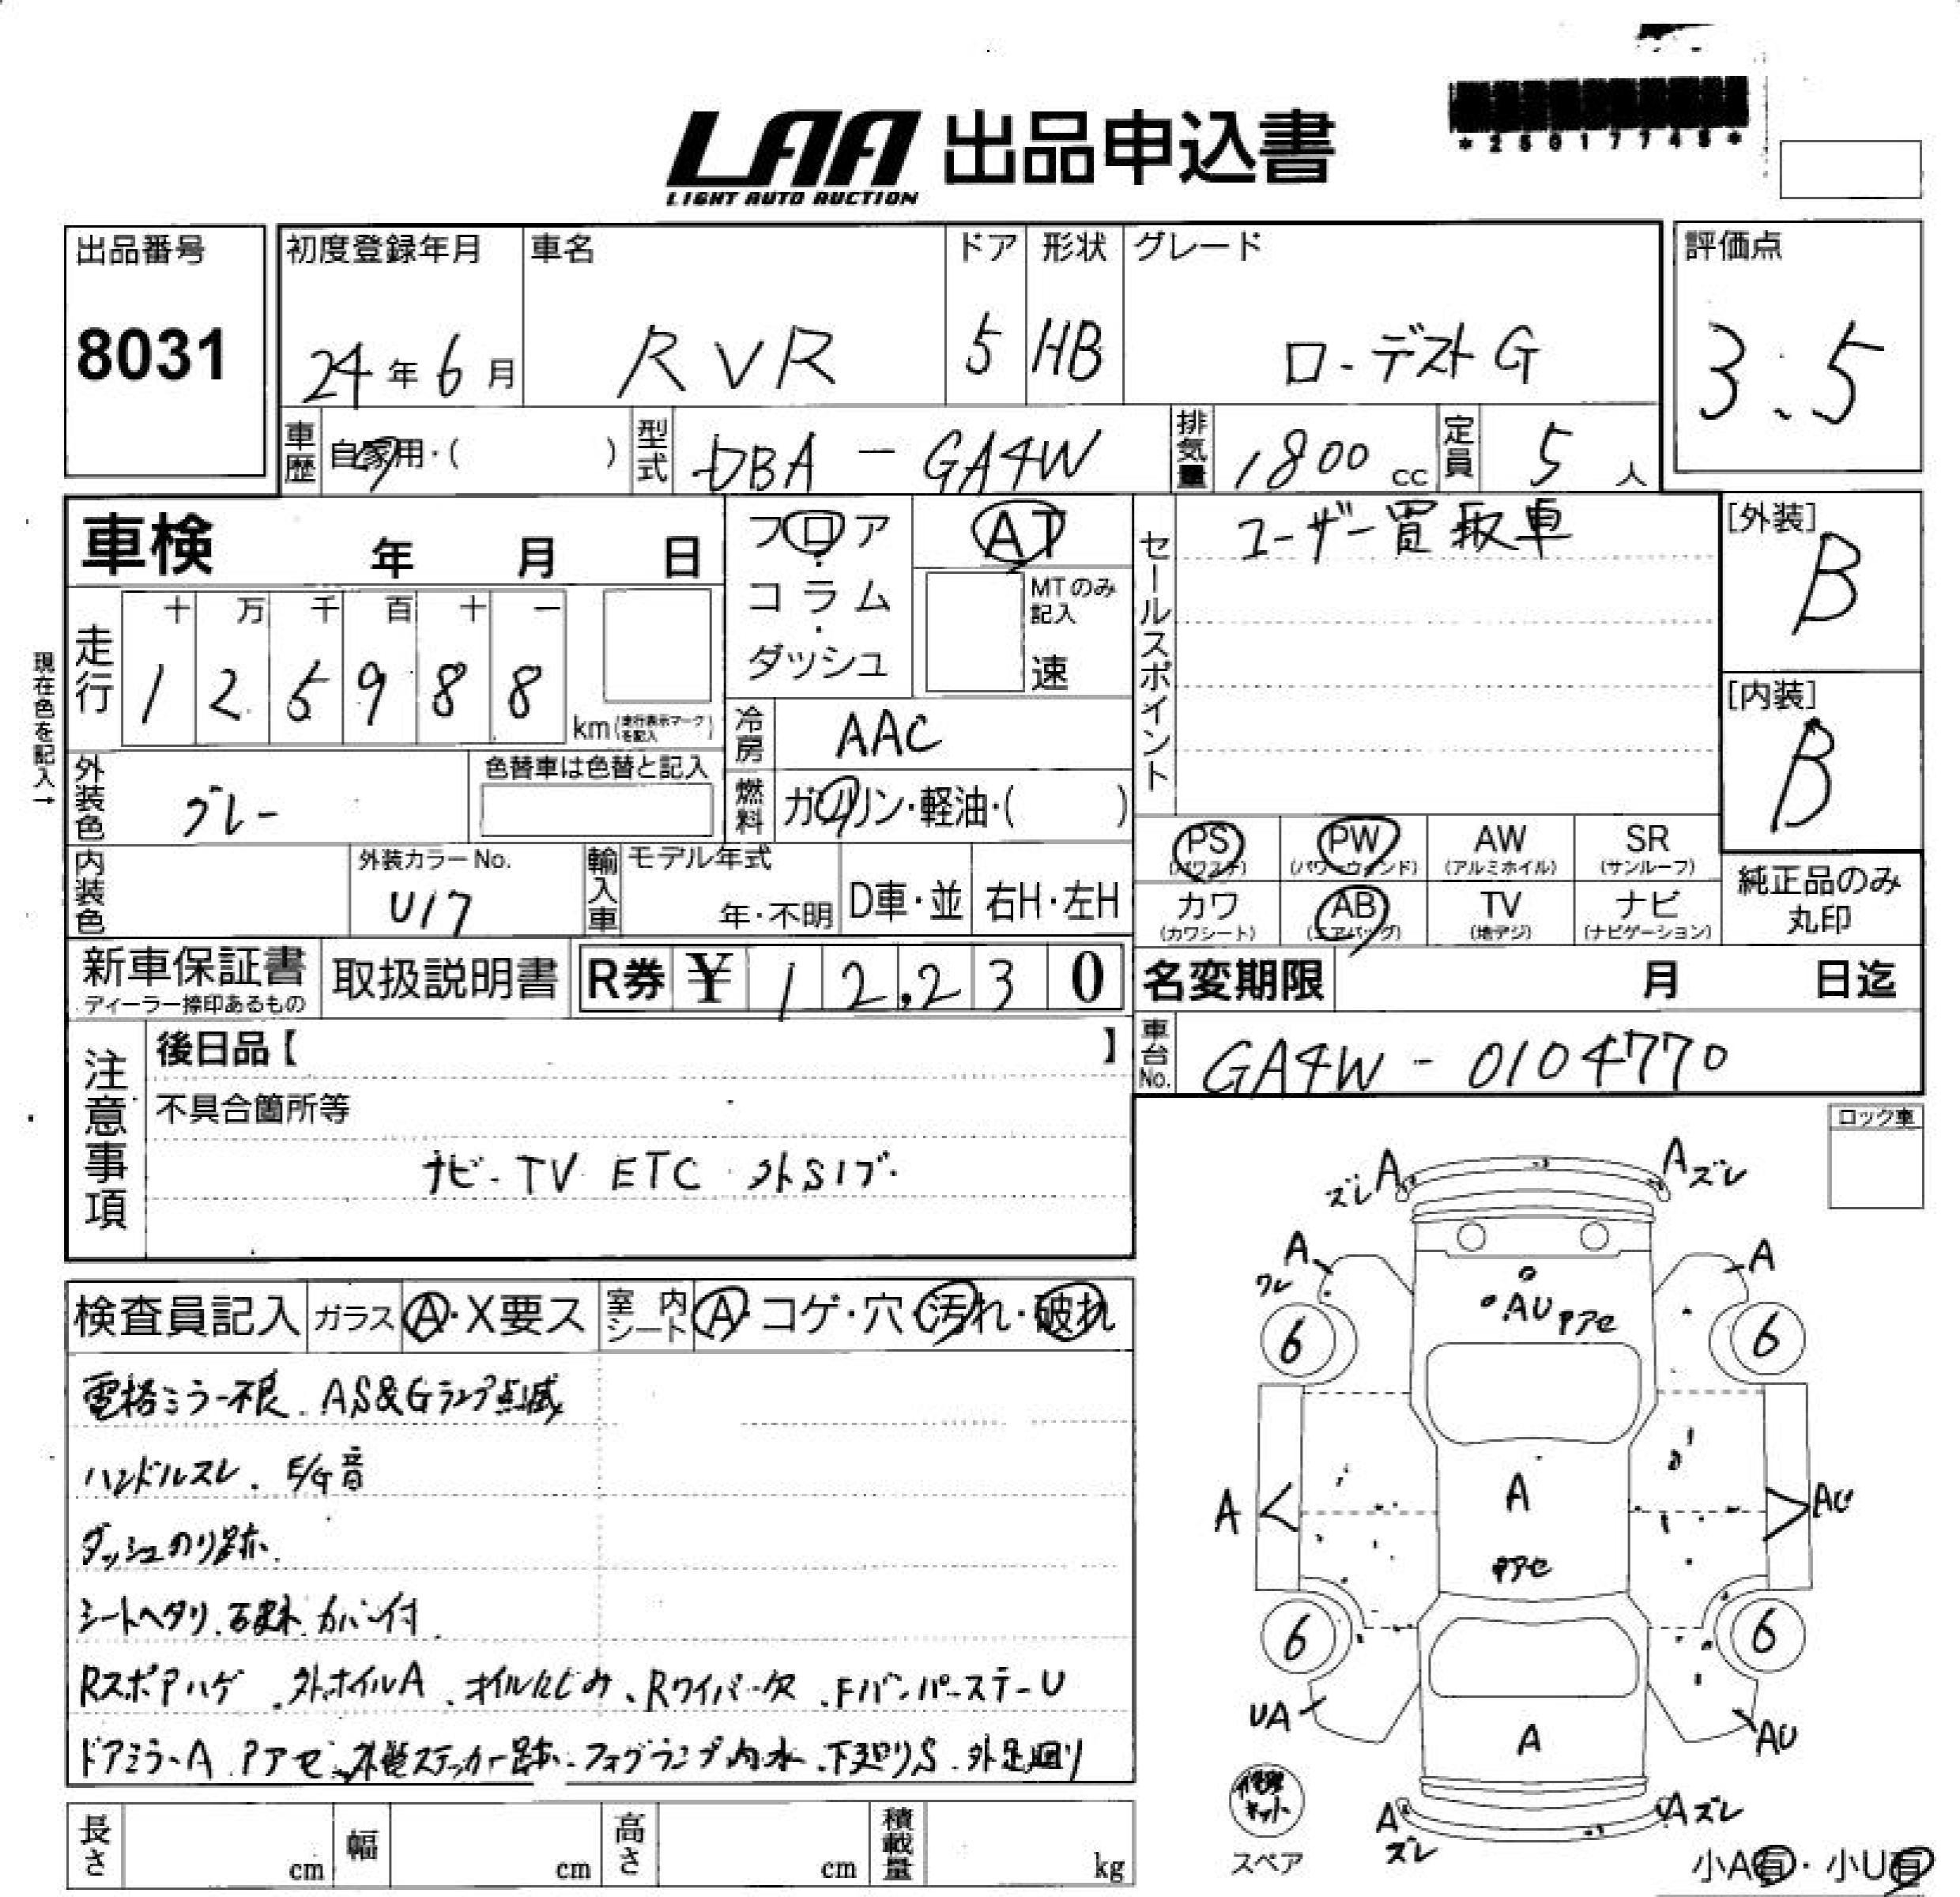 LAA 出品申込書
LIGHT AUTO AUCTION
*25017745*
出品番号
8031
初度登録年月
24年6月
車名
RVR
ドア
5
形状
HB
グレード
ローデストG
評価点
3.5
車歴
自家用・( )
型式
DBA-GA4W
排気量
1800cc
定員
5人
車検 年 月 日
フロア・コラム・ダッシュ
AT
MTのみ記入
速
セールスポイント
ユーザー買取車
[外装]
B
[内装]
B
現在色を記入→
走行
十 万 千 百 十 一
1 2 5 9 8 8
km(走行表示マークを記入)
冷房
AAC
燃料
ガソリン・軽油・( )
外装色
グレー
色替車は色替と記入
内装色
外装カラーNo.
U17
輸入車
モデル年式
年・不明
D車・並
右H・左H
PS
(パワステ)
PW
(パワーウィンド)
AW
(アルミホイル)
SR
(サンルーフ)
カワ
(カワシート)
AB
(エアバッグ)
TV
(地デジ)
ナビ
(ナビゲーション)
純正品のみ
丸印
新車保証書
ディーラー捺印あるもの
取扱説明書
R券 ¥ 12,230
名変期限 月 日迄
車台No.
GA4W-0104770
注意事項
後日品【 】
不具合箇所等
ナビ-TV ETC 外SIブ
ロック車
検査員記入
ガラス
A・X要ス
室内シート
A・コゲ・穴・汚れ・破れ
電格ミラー不良. AS&Gランプ点滅
ハンドルスレ. E/G音
ダッシュのり跡.
シートヘタリ. カバー付.
Rスポアハゲ. 外ホイルA. オイルにじみ. Rワイパー欠. FバンパーステーU
ドアミラーA. Pアセ. ステッカー跡. フォグランプ内水. 下廻りS. 外足廻り
A ズレ
A ズレ
A
ワレ
A
AU Pアセ
6
6
A
A
AU
Pアセ
6
6
UA
A
AU
修理キット
スペア
A ズレ
A ズレ
小A有・小U有
長さ cm
幅 cm
高さ cm
積載量 kg